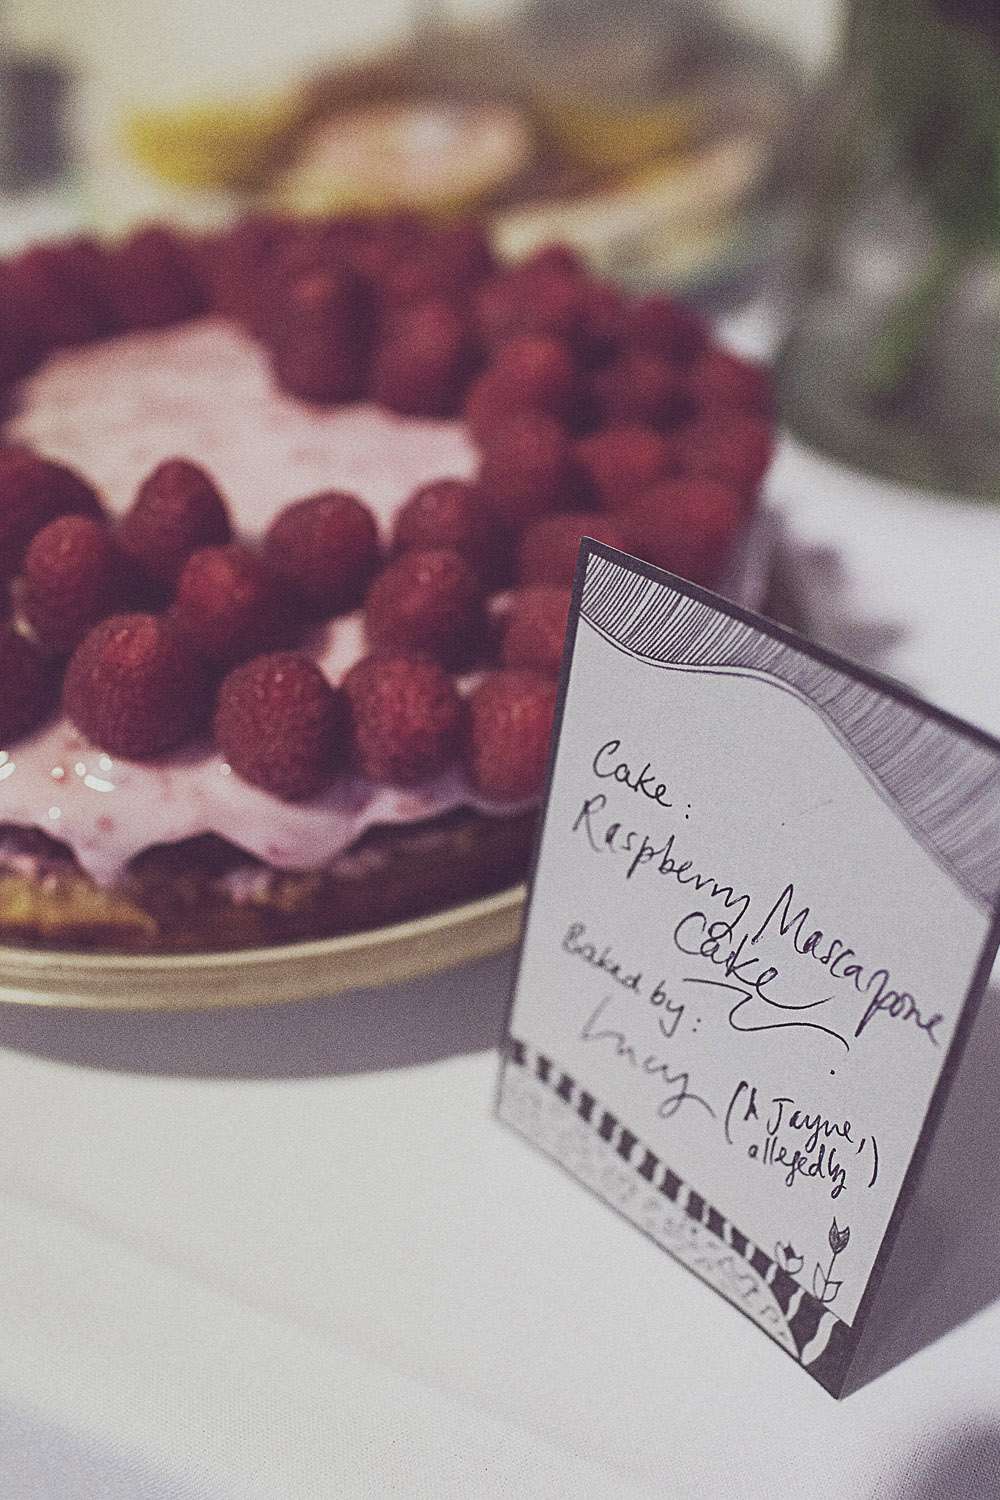 Cake:
Raspberry Mascarpone
Cake
Baked by:
Lucy (& Jayne,
allegedly)